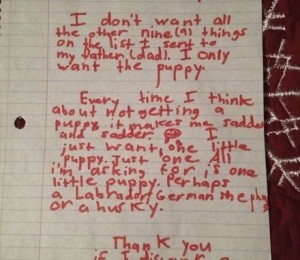 I don't want all
the other nine (9) things
on the list I sent to
my father (dad). I only
want the puppy.
Every time I think
about not getting a
puppy, it makes me sadder
and sadder. I
just want one little
puppy. Just one. All
i'm asking for is one
little puppy. Perhaps
a Labrador, German shepha
or a husky.
Thank you
if I